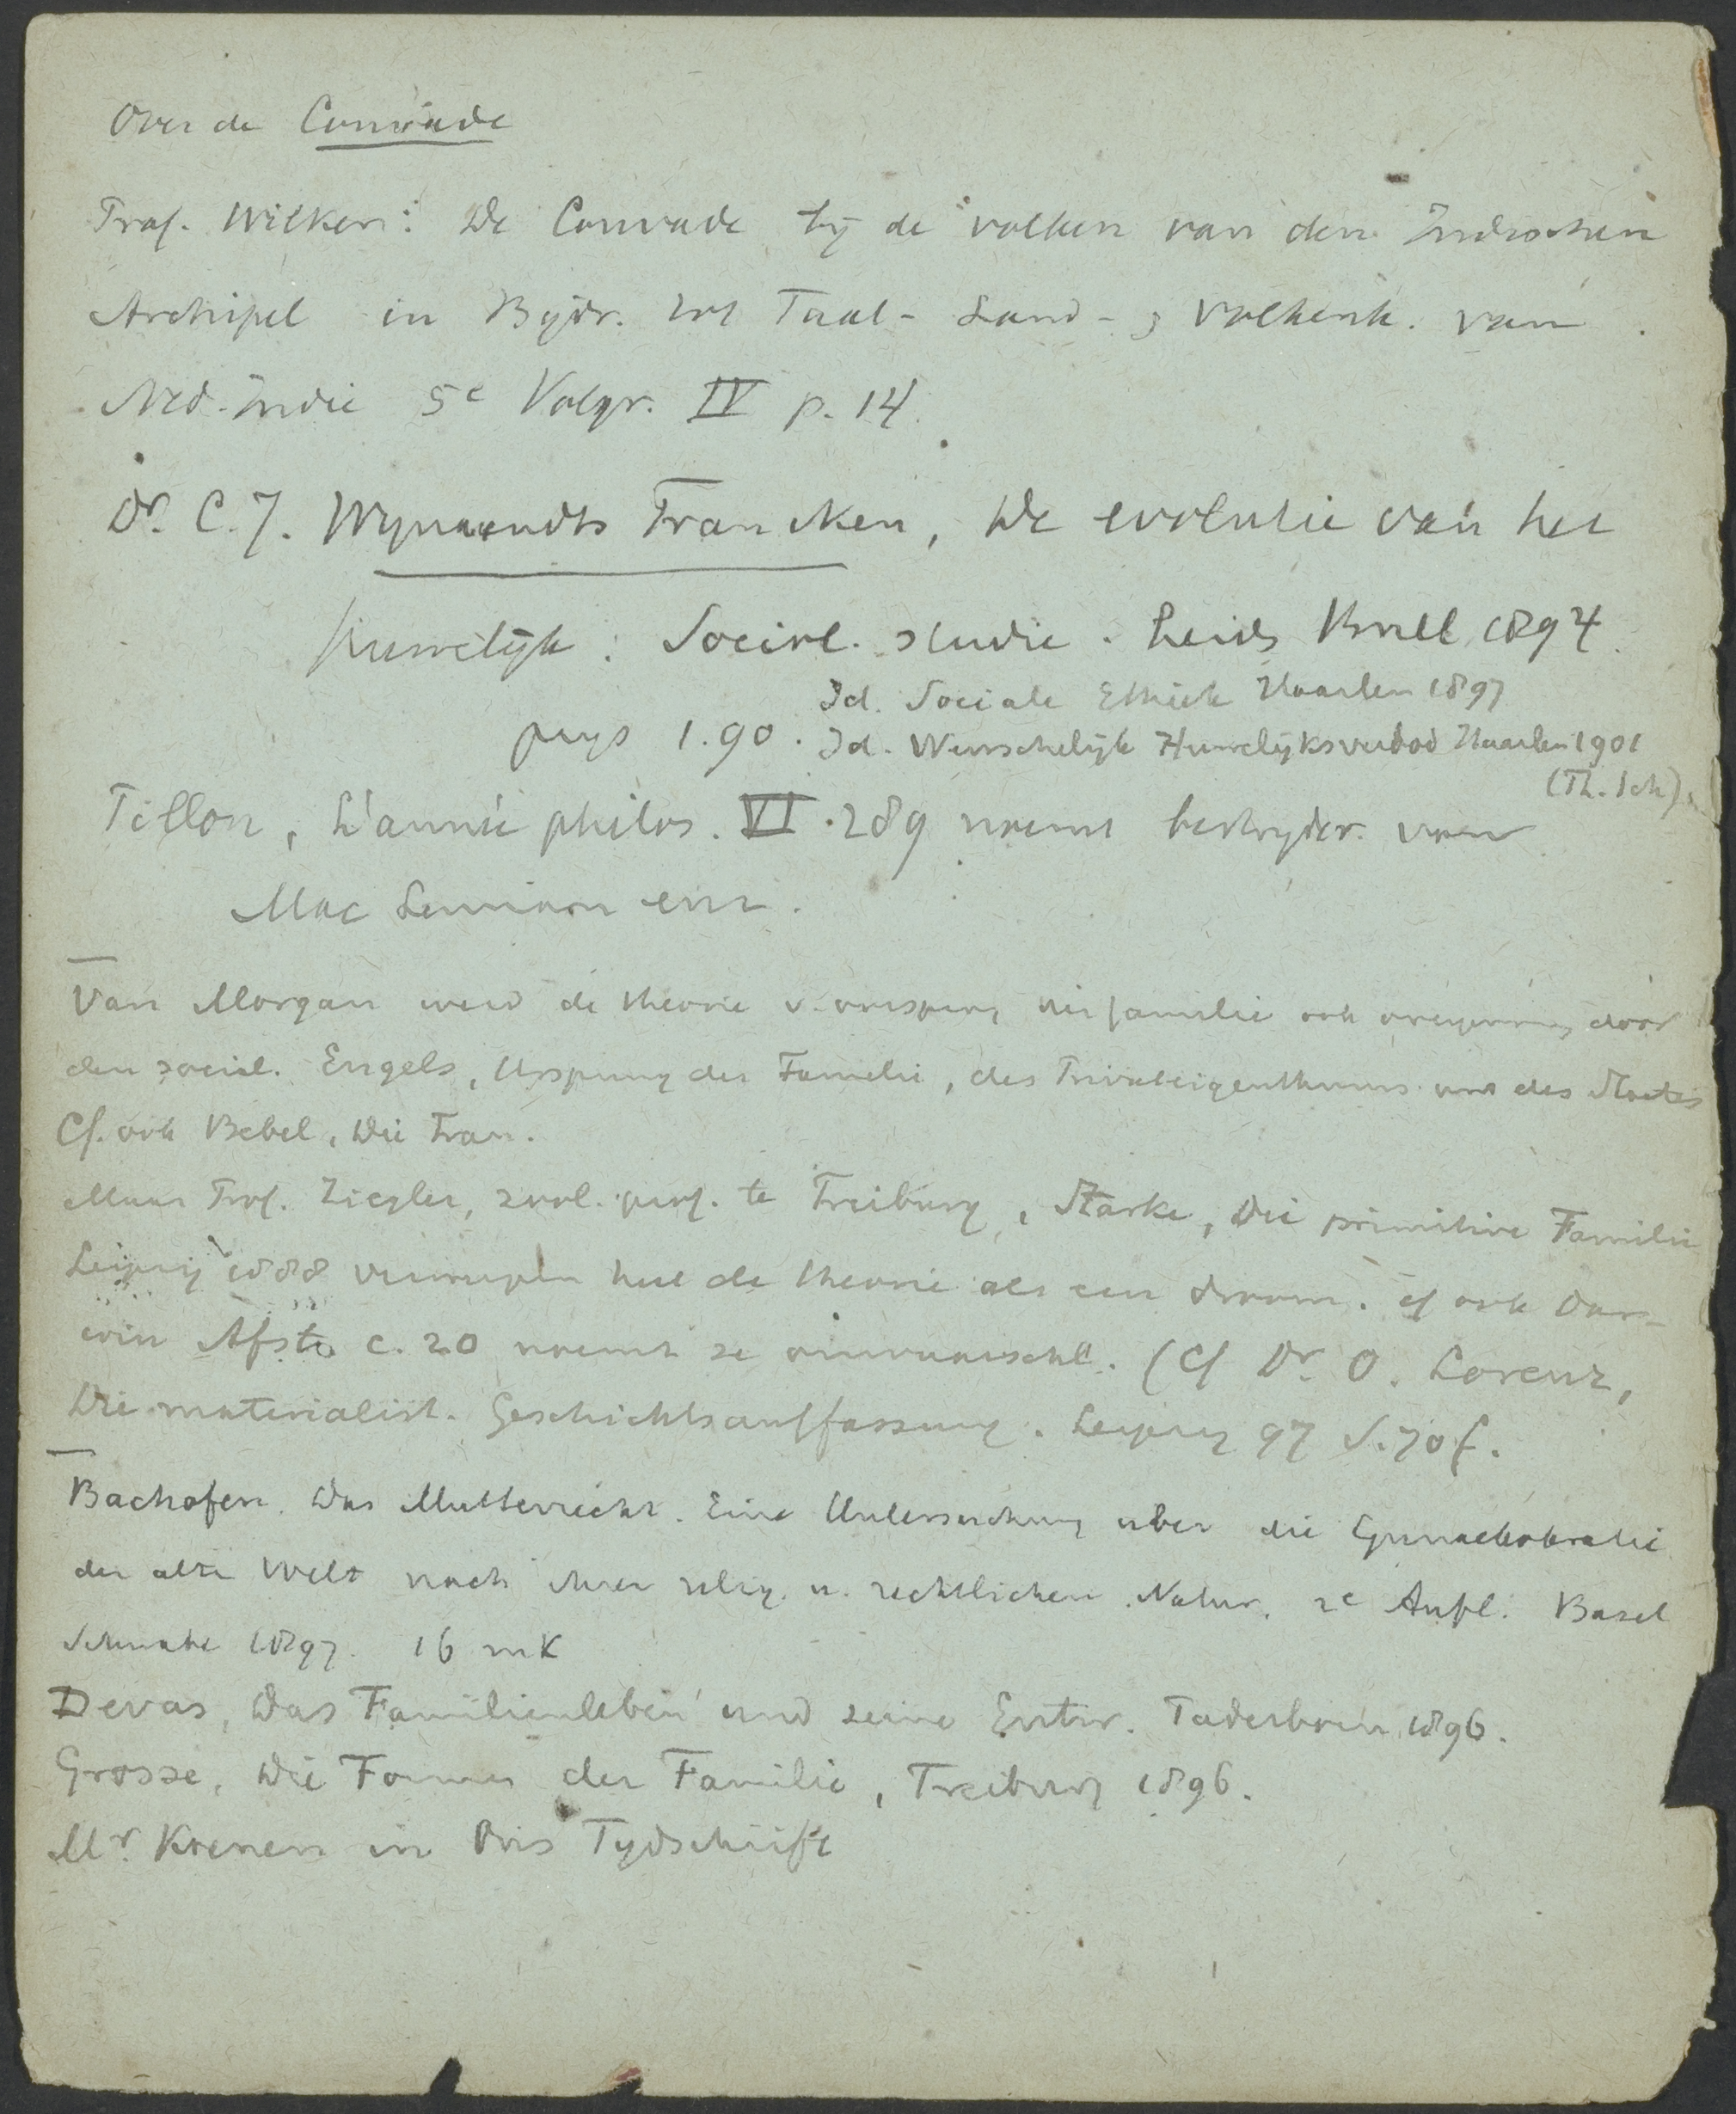 Over de Couvade
Prof. Wilken: De Couvade bij de volken van den Indischen
Archipel in Bijdr. tot Taal- Land- & Volkenk. van
Ned-Indie 5e Volgr. IV p. 14.
Dr. C.J. Wijnaendts Francken, De evolutie van het
huwelijk: Sociol. studie. Leids Brill 1894.
Id. Sociale Ethiek Haarlem 1897
prijs 1.90. Id. Wenschelijk Huwelijksverbod Haarlem 1901
(Th. Sch)
Pillon, L'année philos. VI. 289 noemt bestrijder. van
Mac Lennan enz.
Van Morgan werd de theorie v. oorsprong der familie ook overgenomen door
den social. Engels, Ursprung der Familie, des Privateigenthums und des Staates
Cf. ook Bebel, Die Frau.
Maar Prof. Ziegler, zool. prof. te Freiburg, Starke, Die primitive Familie
Leipzig 1888 verwerpen heel de theorie als een droom. cf ook Dar-
win Afst. c. 20 noemt ze onwaarschl. (Cf Dr. O. Lorenz,
Die materialist. Geschichtsauffassung. Leipzig 97 S. 70 f.
Bachofen. Das Mutterrecht. Eine Untersuchung uber die Gynaekokratie
der alte Welt nach ihrer relig. u. rechtlichen Natur. 2e Aufl. Basel
Schwabe 1897. 16 mk
Devas, Das Familienleben und seine Entw. Paderborn 1896.
Grosse, Die Formen der Familie, Freiburg 1896.
Mr. Koenen in Ons Tijdschrift